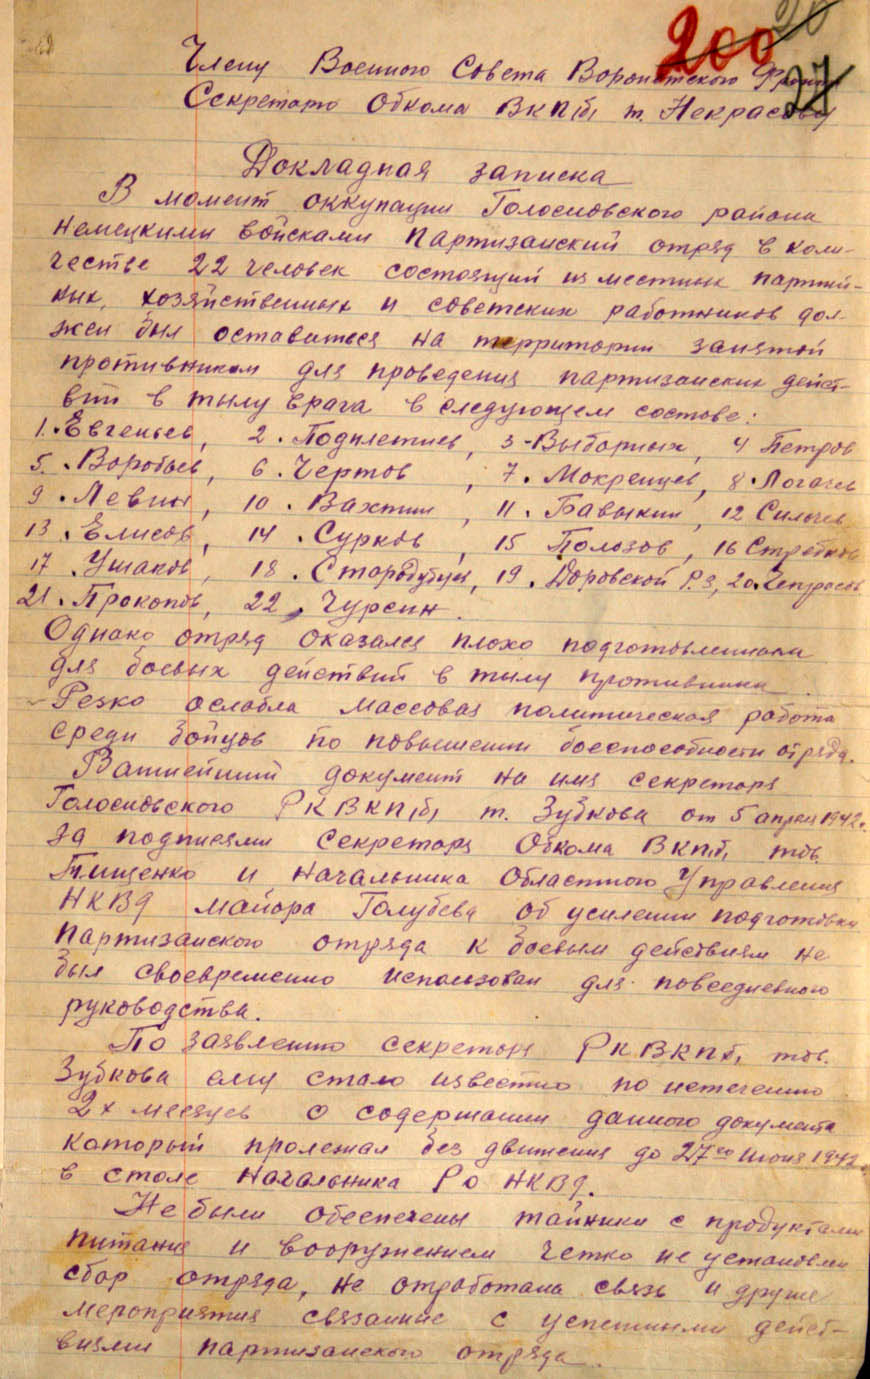 200
20
27
Члену Военного Совета Воронежского Фронта
Секретарю Обкома ВКП(б) т. Некрасову
Докладная записка
В момент оккупации Голосновского района
немецкими войсками партизанский отряд в коли-
честве 22 человек состоящий из местных партий-
ных, хозяйственных и советских работников дол-
жен был оставаться на территории занятой
противником для проведения партизанских дейст-
вий в тылу врага в следующем составе:
1. Евгеньев, 2. Подклетнев, 3 - Выборных, 4 Петров
5. Воробьев, 6. Чертов, 7. Мокренцев, 8. Логачев
9. Левин, 10. Вахтин, 11. Бавыкин, 12 Силачев
13. Елисов, 14. Сурков, 15 Полозов, 16 Стребков
17. Ушаков, 18. Стародубцев, 19. Доровской Р.З, 20. Непрасов
21. Прокопов, 22. Чурсин.
Однако отряд оказался плохо подготовленным
для боевых действий в тылу противника.
Резко ослабла массовая политическая работа
среди бойцов по повышении боеспособности отряда.
Важнейший документ на имя секретаря
Голосновского РКВКП(б) т. Зубкова от 5 апреля 1942 г.
за подписями Секретаря Обкома ВКП(б) тов.
Тищенко и начальника Областного Управления
НКВД майора Голубева об усилении подготовки
партизанского отряда к боевым действиям не
был своевременно использован для повседневного
руководства.
По заявлению секретаря РКВКП(б) тов.
Зубкова ему стало известно по истечению
2х месяцев о содержании данного документа
который пролежал без движения до 27го июня 1942
в столе начальника РО НКВД.
Не были обеспечены тайники с продуктами
питания и вооружением четко не установлен
сбор отряда, не отработана связь и другие
мероприятия связанные с успешными дейст-
виями партизанского отряда.